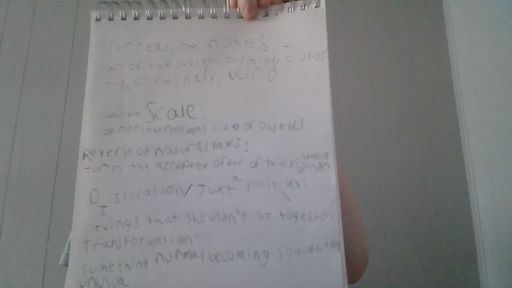 surrealism notes -
art of the subconscious mind, out of
the ordinary, weird
Scale:
changes to normal size of objects
Reverse of natural laws:
- turn the accepted order of things
Dislocation/Juxtaposition:
Things that shouldn't be together
Transformation:
something normal becoming something
unusual